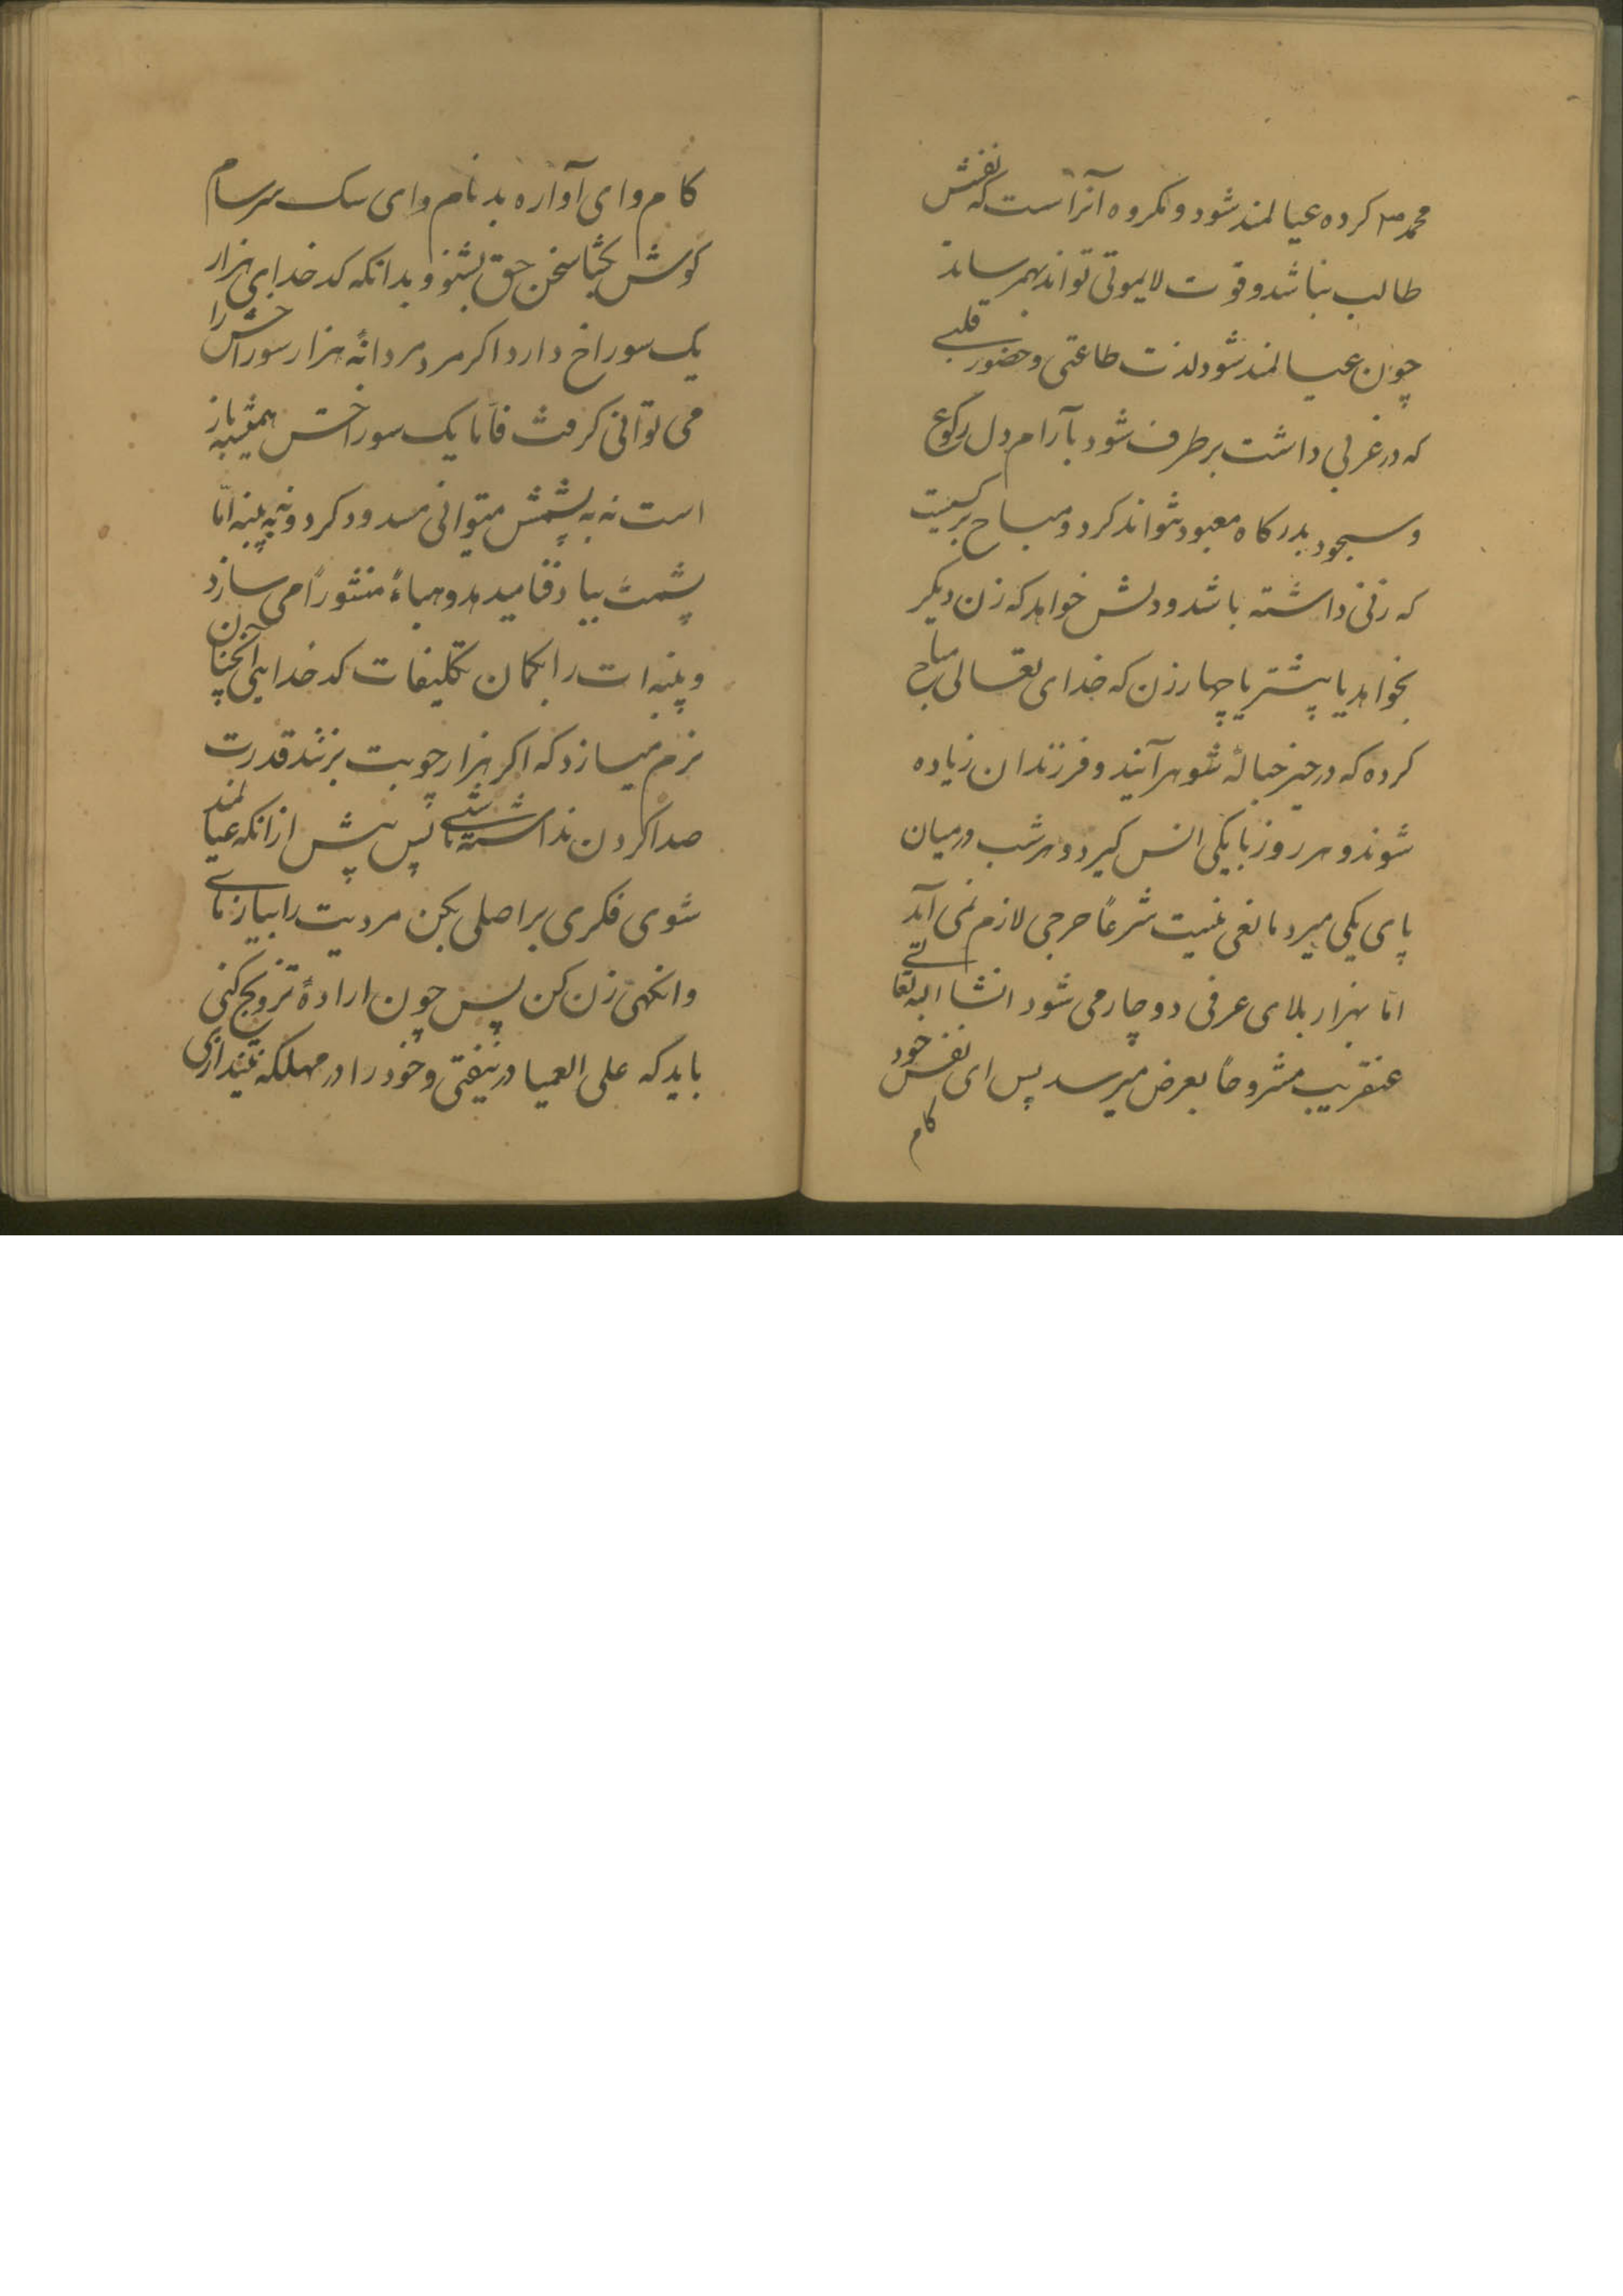 محمد ص کرده عیالمند شود و مکروه آنراست که نفسش
طالب نباشد و قوت لایموتی تواند بهم رساند
چون عیالمند شود لذت طاعتی و حضور قلبی
که در غربی داشت برطرف شود بآرام دل رکوع
و سجود بدرکاه معبود نتواند کرد و مباح بر کسیست
که زنی داشته باشد و دلش خواهد که زن دیکر
بخواهد یا پیشتر یا چهار زن که خدای تعالی مباح
کرده که در حیز حبالهٔ شوهر آیند و فرزندان زیاده
شوند و هر روز با یکی انس کیرد و هر شب در میان
پای یکی میرد مانعی نیست شرعاً حرجی لازم نمی آید
امّا بهزار بلای عرفی دوچار می شود انشا الله تعالی
عنقریب مشروحاً بعرض میرسد پس ای نفس خود
کام
کام و ای آواره بدنام و ای سک سرسام
کوش بکشا سخن حق بشنو و بدانکه کدخدایی هزار
یک سوراخ دارد اکر مرد مردانهٔ هزار سوراخش را
می توانی کرفت فامّا یک سوراخش همیشه باز
است نه به پشمش میتوانی مسدود کرد و نه به پنبه امّا
پشمت بباد فنا میدهد و هباءً منثوراً می سازد
و پنبه ات را بکمان تکلیفات کدخدایی آنچنان
نرم میسازد که اکر هزار چوبت بزنند قدرت
صدا کردن نداشته باشی پس پیش از انکه عیالمند
شوی فکری بر اصلی بکن مردیت را بیازمای
وانکهی زن کن پس چون ارادهٔ تزویج کنی
باید که علی العمیا در نیفتی و خود را در مهلکه نیندازی